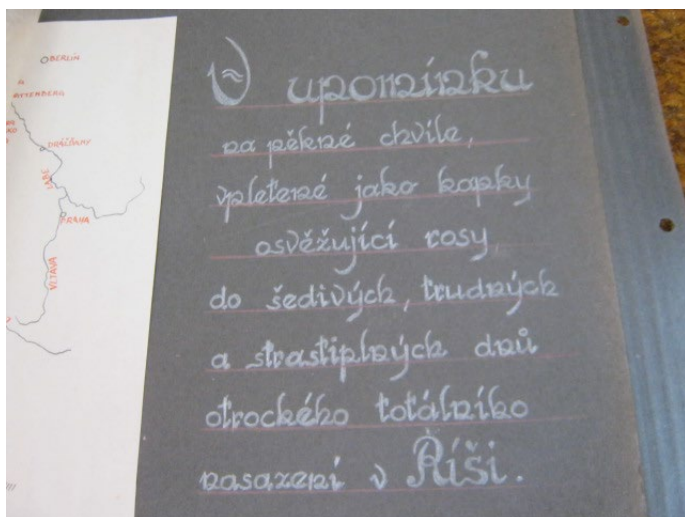 BERLÍN
WITTENBERG
DRÁŽĎANY
LABE
PRAHA
VLTAVA
V upomínku
na pěkné chvíle,
vpletené jako kapky
osvěžující rosy
do šedivých, trudných
a strastiplných dnů
otrockého totálního
nasazení v Říši.